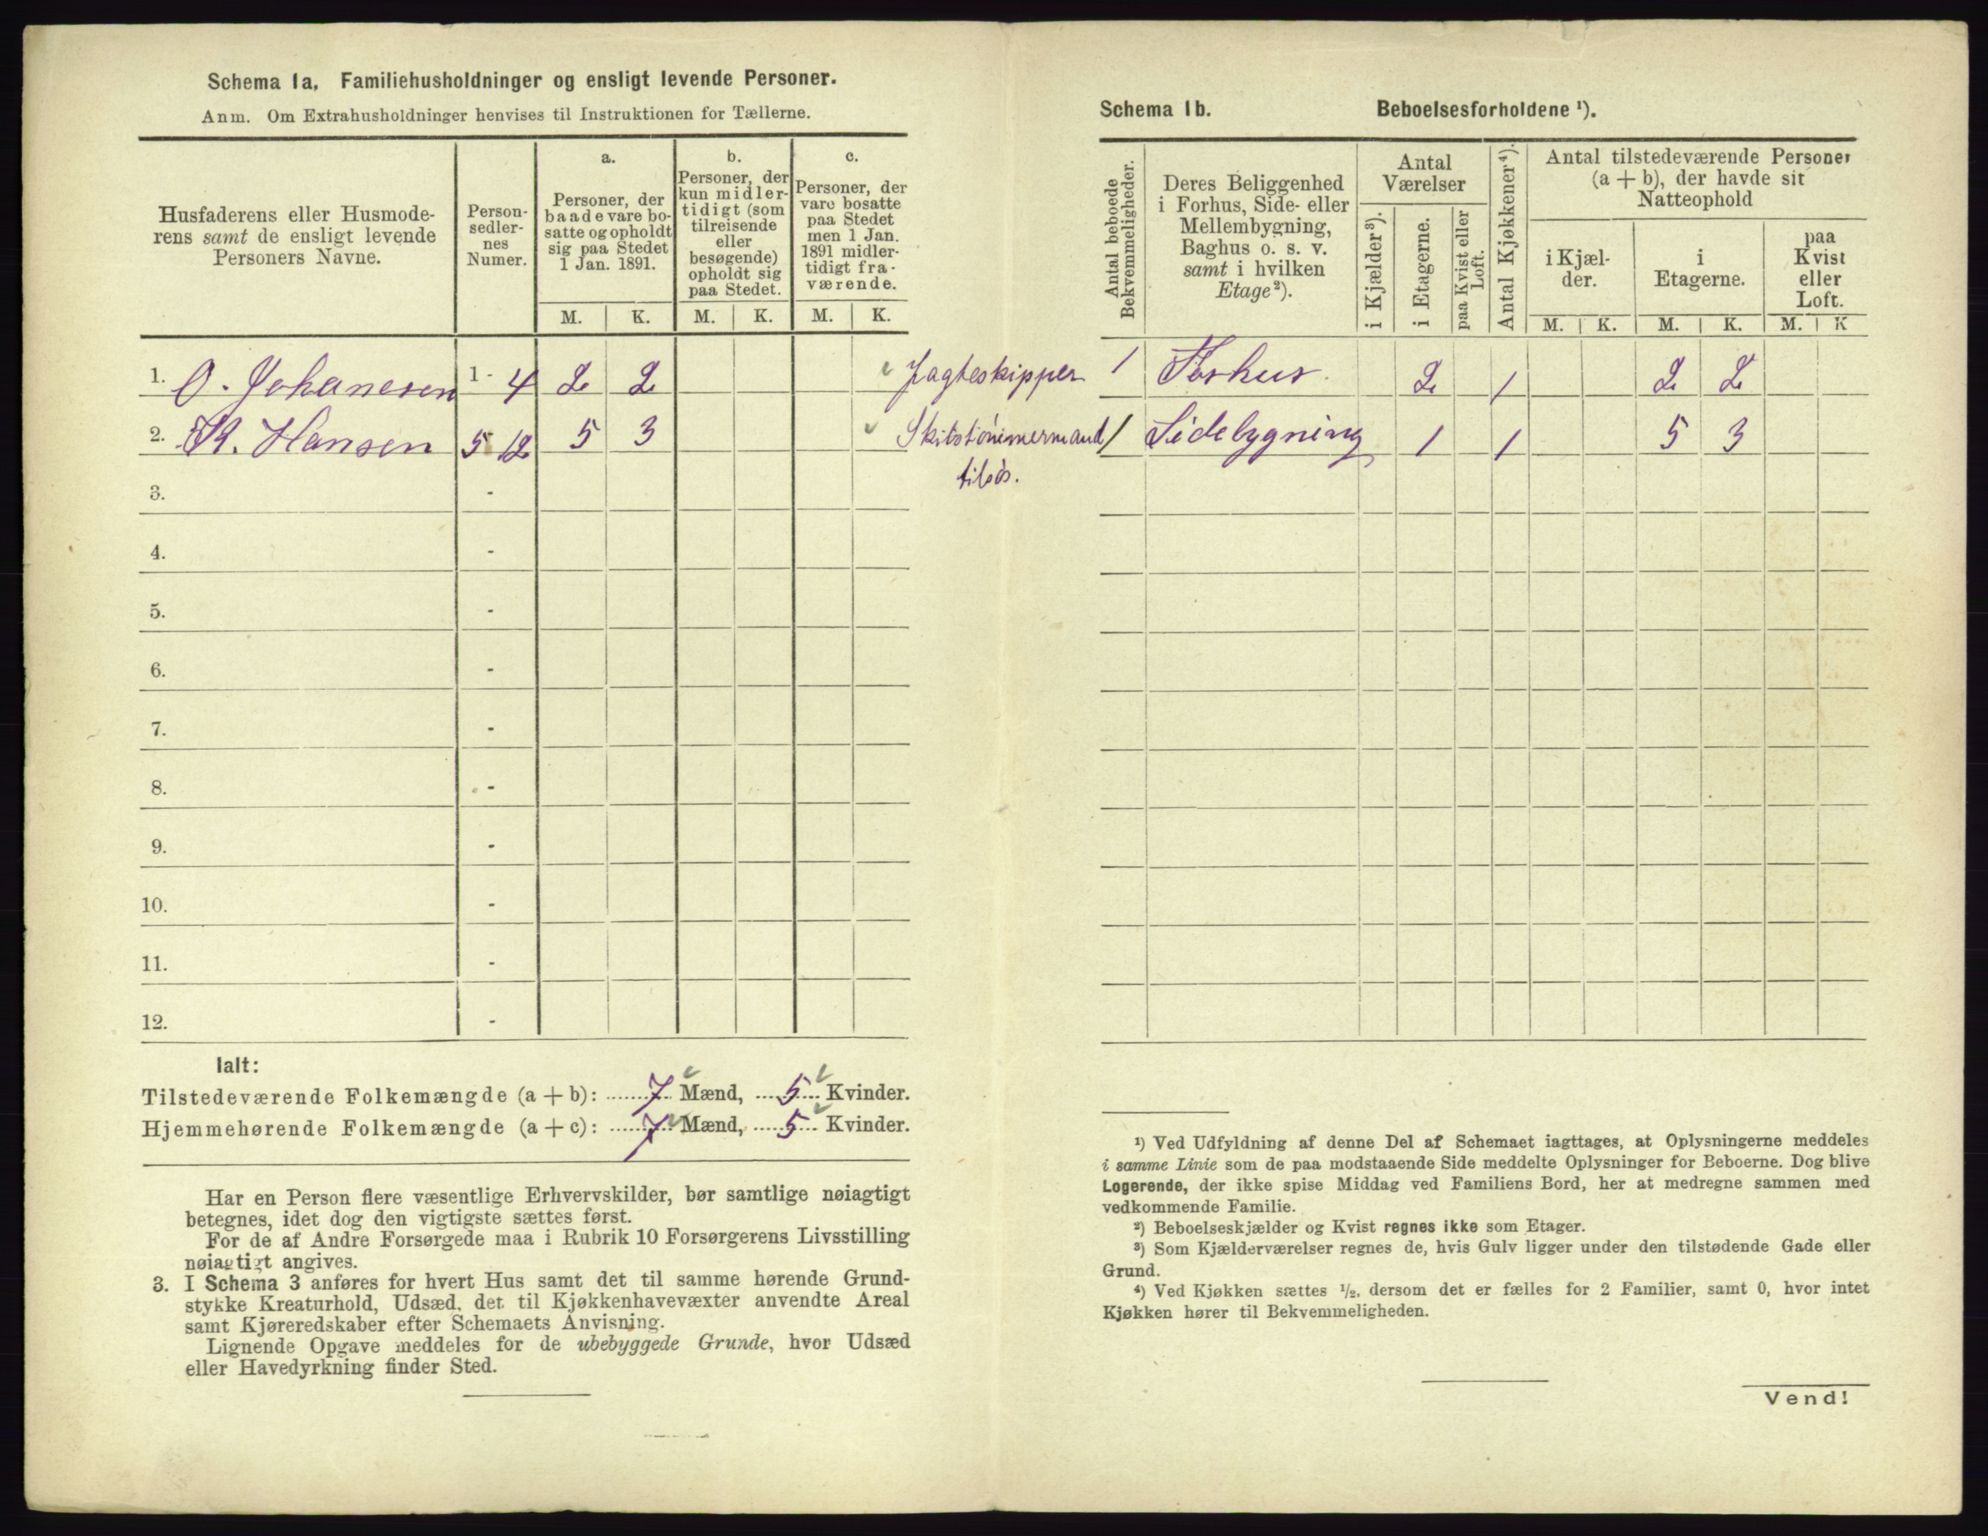 Schema 1a. Familiehusholdninger og ensligt levende Personer.
Anm. Om Extrahusholdninger henvises til Instruktionen for Tællerne.
Husfaderens eller Husmode-
rens samt de ensligt levende
Personers Navne.
Person-
sedler-
nes
Numer.
a.
Personer, der
baade vare bo-
satte og opholdt
sig paa Stedet
1 Jan. 1891.
b.
Personer, der
kun midler-
tidigt (som
tilreisende
eller
besøgende)
opholdt sig
paa Stedet.
c.
Personer, der
vare bosatte
paa Stedet
men 1 Jan.
1891 midler-
tidigt fra-
værende.
M. K. M. K. M. K.
1. O. Johanesen 1 - 4 2 2 Jagteskipper
2. K. Hansen 5 12 5 3 Skibstömmermand
tilsös.
3. -
4. -
5. -
6. -
7. -
8. -
9. -
10. -
11. -
12. -
Ialt:
Tilstedeværende Folkemængde (a + b): 7 Mænd, 5 Kvinder.
Hjemmehørende Folkemængde (a + c): 7 Mænd, 5 Kvinder.
Har en Person flere væsentlige Erhvervskilder, bør samtlige nøiagtigt
betegnes, idet dog den vigtigste sættes først.
For de af Andre Forsørgede maa i Rubrik 10 Forsørgerens Livsstilling
nøiagtigt angives.
3. I Schema 3 anføres for hvert Hus samt det til samme hørende Grund-
stykke Kreaturhold, Udsæd, det til Kjøkkenhavevæxter anvendte Areal
samt Kjøreredskaber efter Schemaets Anvisning.
Lignende Opgave meddeles for de ubebyggede Grunde, hvor Udsæd
eller Havedyrkning finder Sted.
Schema 1b. Beboelsesforholdene ¹).
Antal beboede
Bekvemmeligheder.
Deres Beliggenhed
i Forhus, Side- eller
Mellembygning,
Baghus o. s. v.
samt i hvilken
Etage²).
Antal
Værelser
i Kjælder³).
i Etagerne.
paa Kvist eller
Loft.
Antal Kjøkkener⁴).
Antal tilstedeværende Personer
(a + b), der havde sit
Natteophold
i Kjæl-
der.
i
Etagerne.
paa
Kvist
eller
Loft.
M. K. M. K. M. K
1 Forhus. 2 1 2 2
1 Sidebygning 1 1 5 3
¹) Ved Udfyldning af denne Del af Schemaet iagttages, at Oplysningerne meddeles
i samme Linie som de paa modstaaende Side meddelte Oplysninger for Beboerne. Dog blive
Logerende, der ikke spise Middag ved Familiens Bord, her at medregne sammen med
vedkommende Familie.
²) Beboelseskjælder og Kvist regnes ikke som Etager.
³) Som Kjælderværelser regnes de, hvis Gulv ligger under den tilstødende Gade eller
Grund.
⁴) Ved Kjøkken sættes ½, dersom det er fælles for 2 Familier, samt 0, hvor intet
Kjøkken hører til Bekvemmeligheden.
Vend!